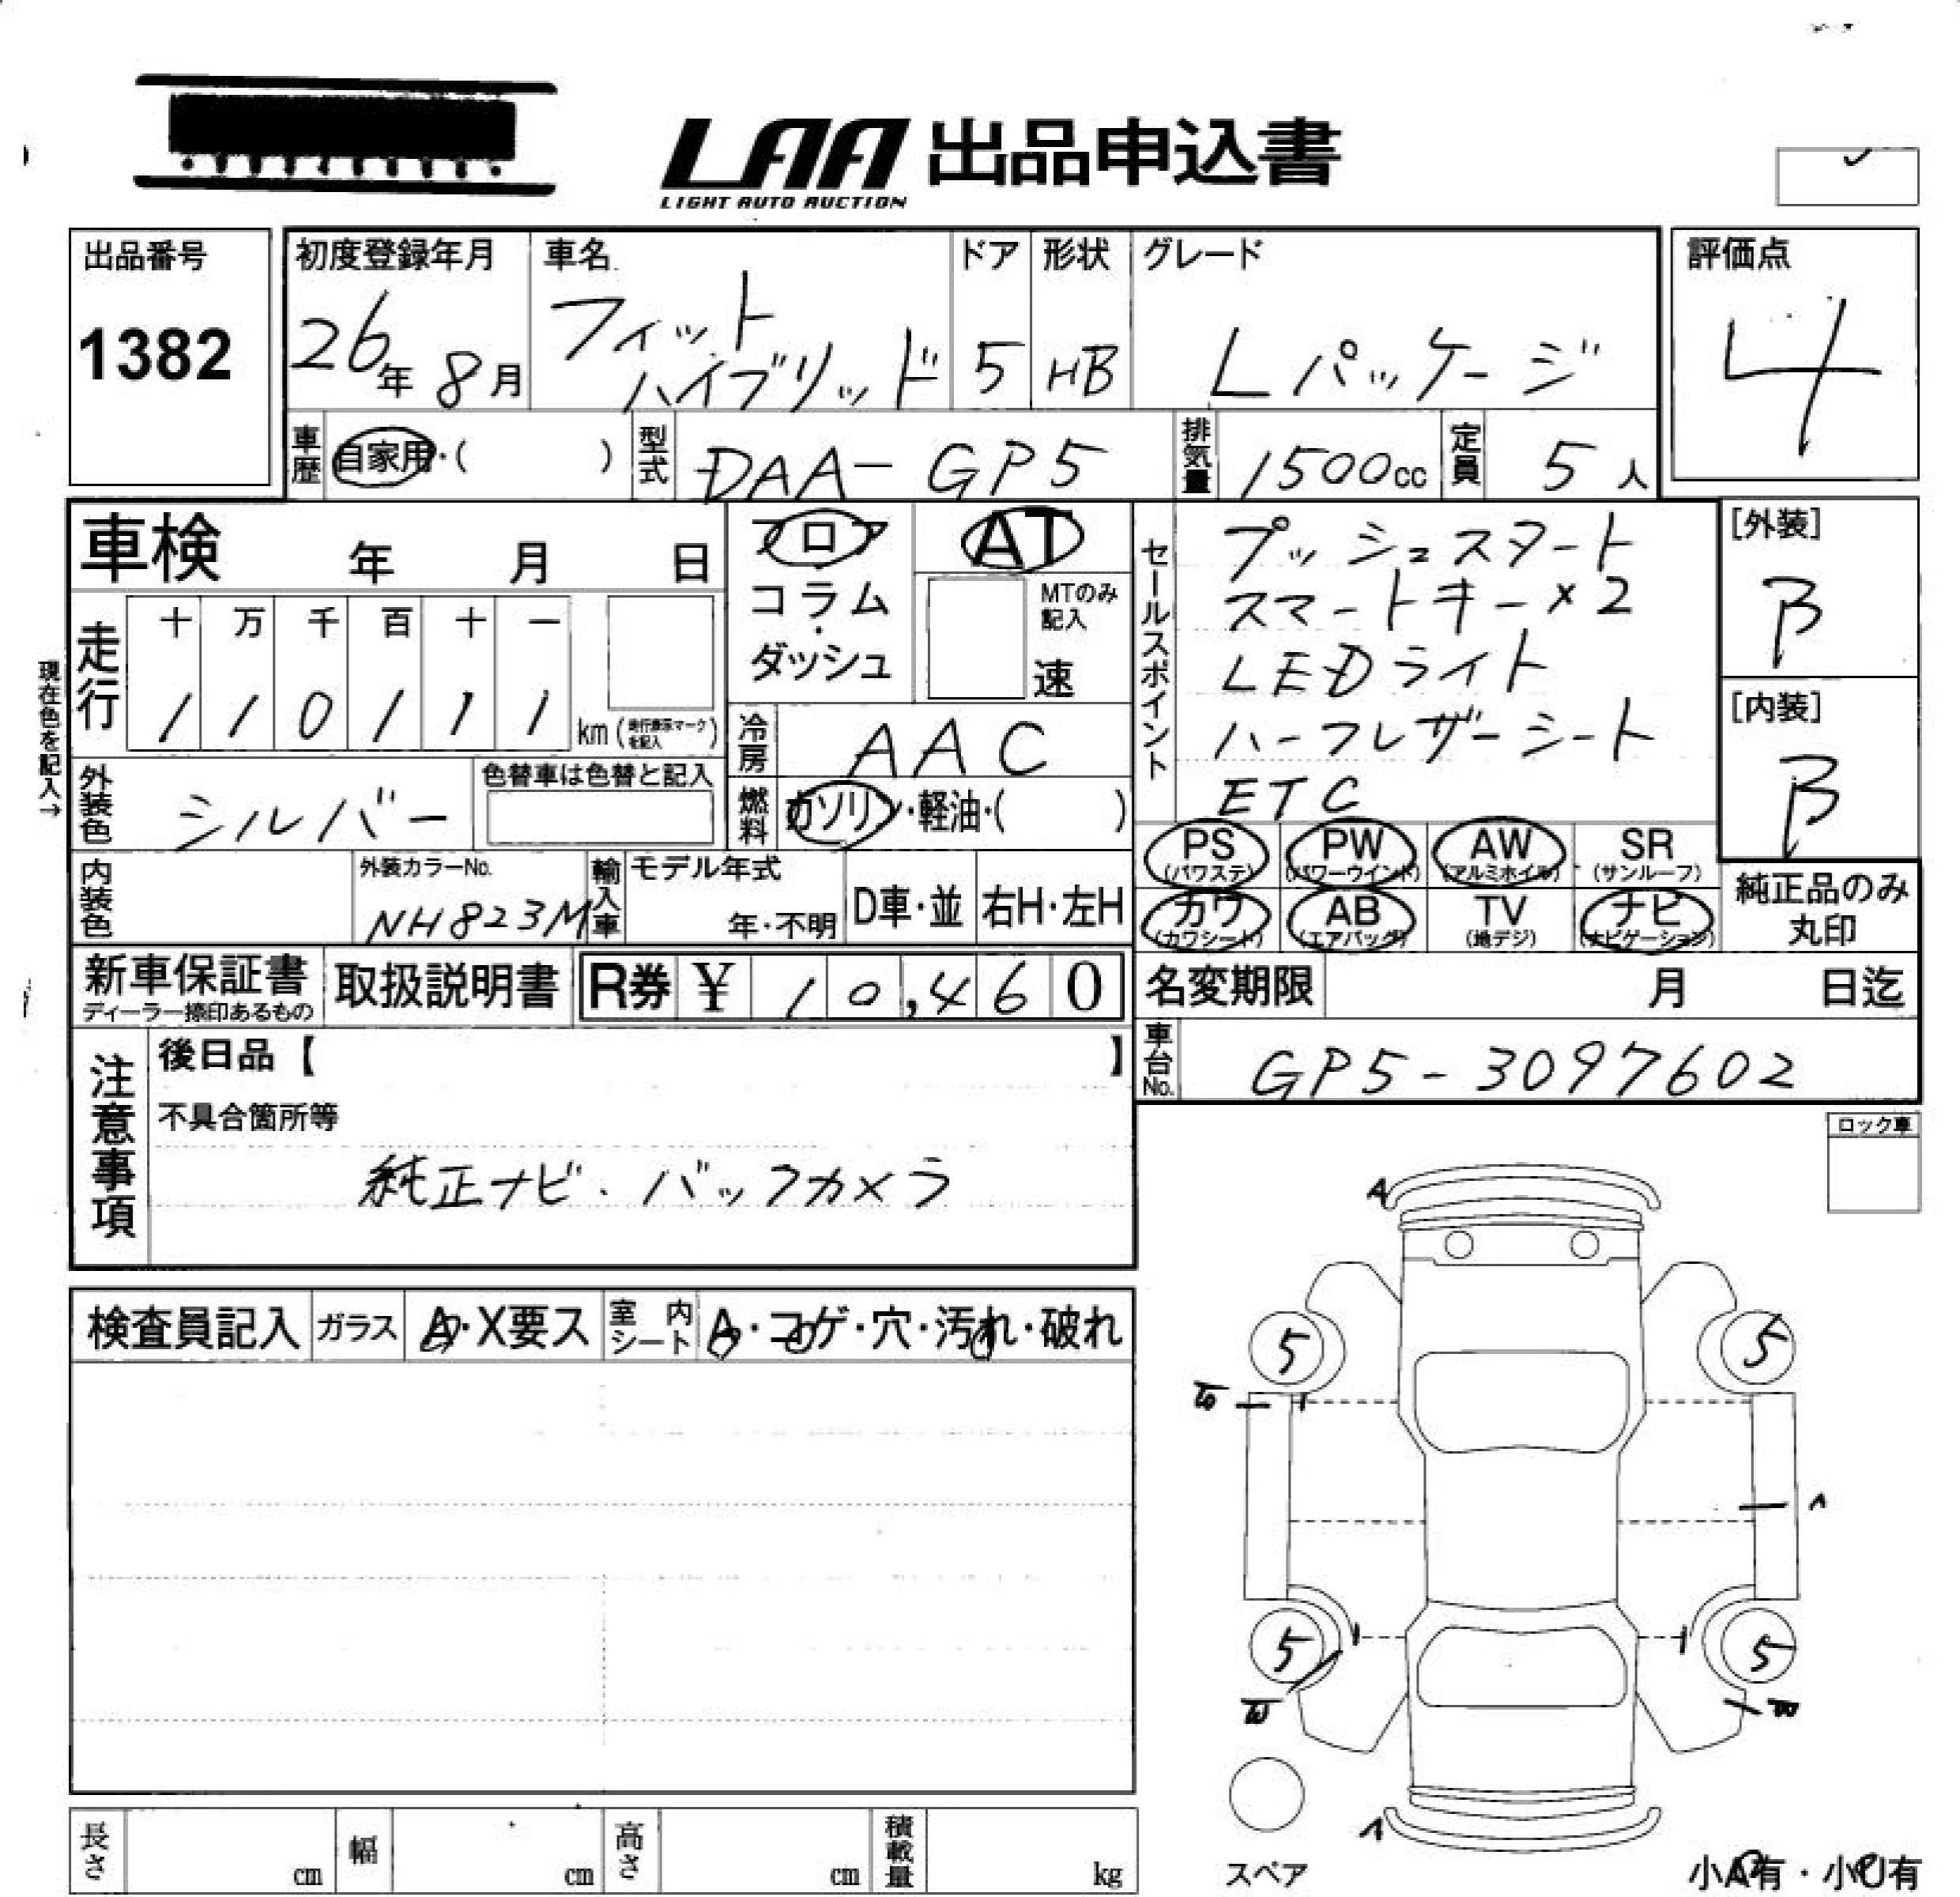 LAA 出品申込書
LIGHT AUTO AUCTION
出品番号
1382
初度登録年月
26年 8月
車名
フィット
ハイブリッド
ドア
5
形状
HB
グレード
Lパッケージ
評価点
4
車歴 自家用・( )
型式 DAA-GP5
排気量 1500cc
定員 5人
車検 年 月 日
フロア
コラム・
ダッシュ
AT
MTのみ
記入
速
セールスポイント
プッシュスタート
スマートキー×2
LEDライト
ハーフレザーシート
ETC
[外装]
B
[内装]
B
現在色を記入→
走行
十 万 千 百 十 一
1 1 0 1 1 1 km
冷房 AAC
外装色 シルバー
色替車は色替と記入
燃料 ガソリン・軽油・( )
PS PW AW SR
(パワステ) (パワーウインド) (アルミホイル) (サンルーフ)
カワ AB TV ナビ
(カワシート) (エアバッグ) (地デジ) (ナビゲーション)
純正品のみ
丸印
内装色
外装カラーNo.
NH823M
輸入車
モデル年式
年・不明
D車・並
右H・左H
新車保証書
ディーラー捺印あるもの
取扱説明書
R券 ¥ 10,460
名変期限 月 日迄
車台No. GP5-3097602
注意事項
後日品【 】
不具合箇所等
純正ナビ・バックカメラ
ロック車
検査員記入
ガラス A・X要ス
室内シート A・コゲ・穴・汚れ・破れ
A
5 5
5 5
スペア
小A有・小U有
長さ cm
幅 cm
高さ cm
積載量 kg